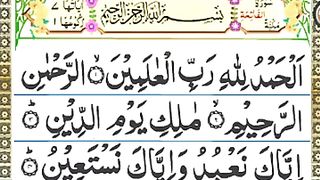 سورة الفاتحة
بِسْمِ اللهِ الرَّحْمٰنِ الرَّحِيْمِ
اٰيَاتُهَا ٧
اَلْحَمْدُ لِلّٰهِ رَبِّ الْعٰلَمِيْنَ ۝١ الرَّحْمٰنِ
الرَّحِيْمِ ۝٢ مٰلِكِ يَوْمِ الدِّيْنِ ۝٣
اِيَّاكَ نَعْبُدُ وَاِيَّاكَ نَسْتَعِيْنُ ۝٤